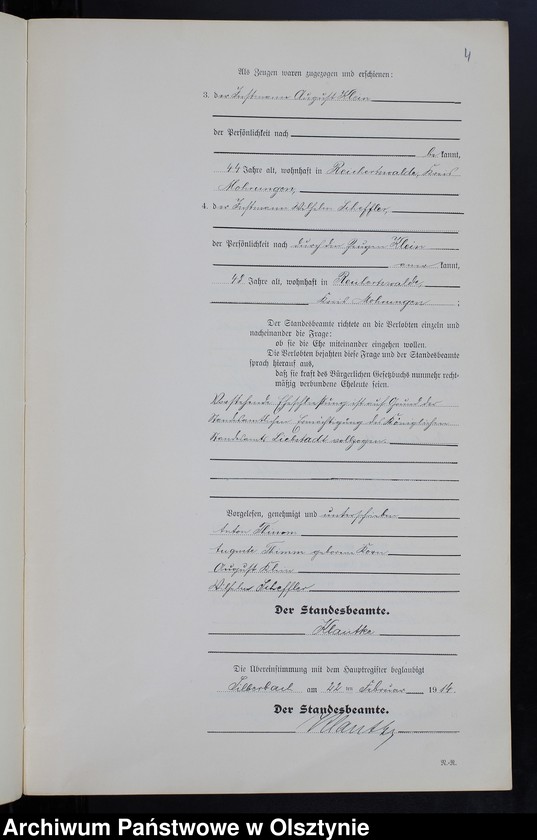 4
Als Zeugen waren zugezogen und erschienen:
3. der Instmann August Klein
der Persönlichkeit nach
be kannt,
44 Jahre alt, wohnhaft in Reichertswalde, Kreis
Mohrungen,
4. der Instmann Wilhelm Scheffler,
der Persönlichkeit nach durch den Zeugen Klein
aner kannt,
48 Jahre alt, wohnhaft in Reichertswalde,
Kreis Mohrungen ;
Der Standesbeamte richtete an die Verlobten einzeln und
nacheinander die Frage:
ob sie die Ehe miteinander eingehen wollen.
Die Verlobten bejahten diese Frage und der Standesbeamte
sprach hierauf aus,
daß sie kraft des Bürgerlichen Gesetzbuchs nunmehr recht-
mäßig verbundene Eheleute seien.
Vorstehende Eheschließung ist auf Grund der
standesamtlichen Ermächtigung des Königlichen
Standesamts Liebstadt vollzogen.
Vorgelesen, genehmigt und unterschrieben
Anton Thimm
Auguste Thimm geborene Korn
August Klein
Wilhelm Scheffler
Der Standesbeamte.
Klautke
Die Übereinstimmung mit dem Hauptregister beglaubigt
Silberbach am 22 ten Februar 1914.
Der Standesbeamte.
Klautke
N.-R.
Archiwum Państwowe w Olsztynie